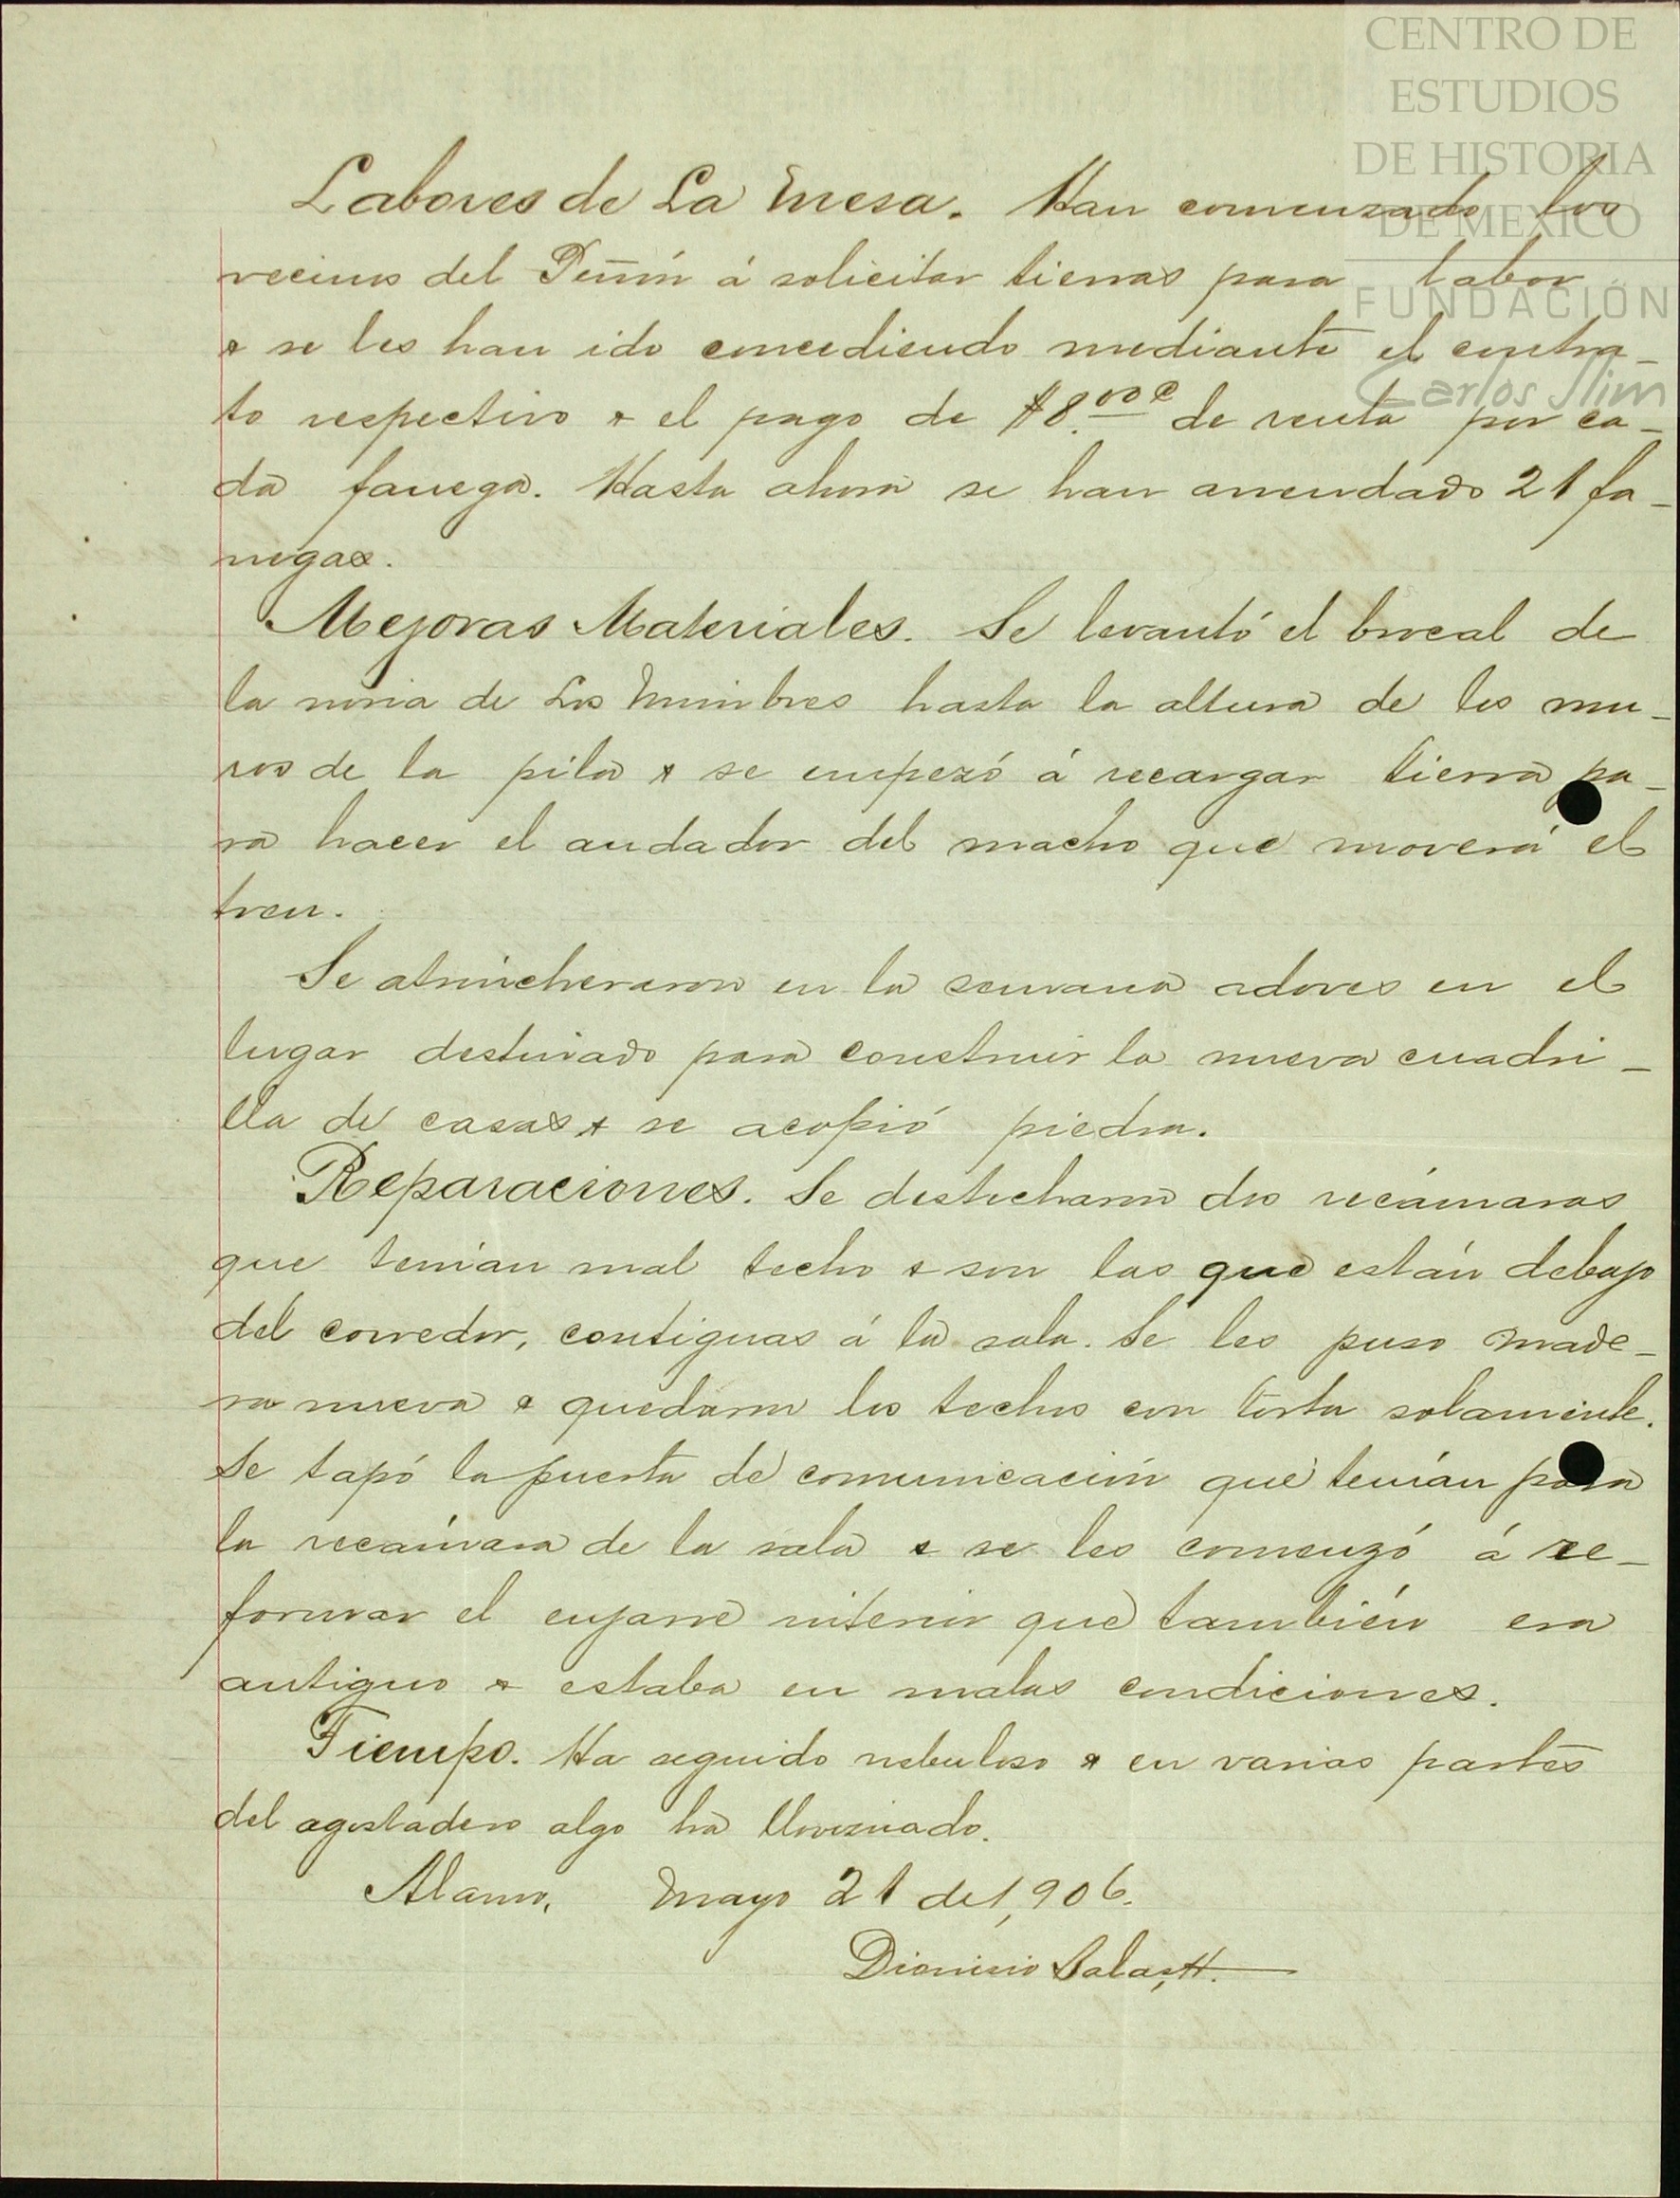 CENTRO DE
ESTUDIOS
DE HISTORIA
DE MEXICO
FUNDACIÓN
Carlos Slim
Labores de La Mesa. Han comenzado los
vecinos del Peñón á solicitar tierras para labor
& se les han ido concediendo mediante el contra_
to respectivo & el pago de $8.00 c de renta por ca_
da fanega. Hasta ahora se han arrendado 21 fa_
negas.
Mejoras Materiales. Se levantó el brocal de
la noria de Los Mimbres hasta la altura de los mu_
ros de la pila & se empezó á recargar tierra pa_
ra hacer el andador del macho que moverá el
tren.
Se atrincheraron en la semana adoves en el
lugar destinado para construir la nueva cuadri_
lla de casas & se acopió piedra.
Reparaciones. Se destecharon dos recámaras
que tenían mal techo & son las que están debajo
del corredor, contiguas á la sala. Se les puso made_
ra nueva & quedaron los techos con torta solamente.
Se tapó la puerta de comunicación que tenían para
la recámara de la sala & se les comenzó á re_
formar el enjarre interior que también era
antiguo & estaba en malas condiciones.
Tiempo. Ha seguido nebuloso & en varias partes
del agostadero algo ha lloviznado.
Alamo, Mayo 21 de 1,906.
Dionisio Salas, H.